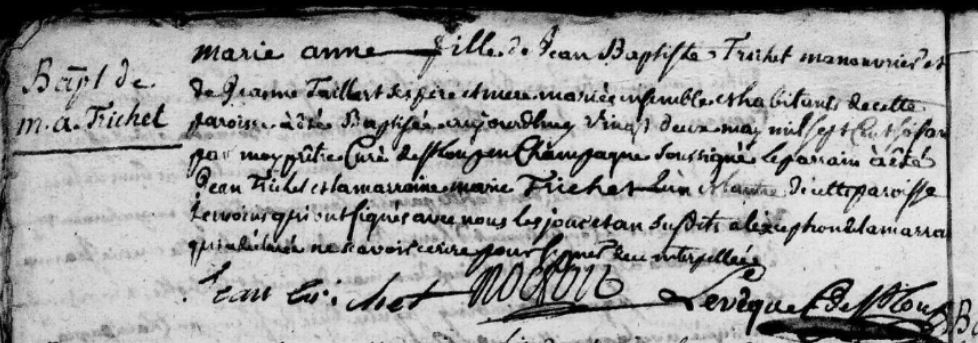 Bapt de
m. a. Trichet
marie anne fille de Jean Baptiste Trichet manouvrier et
de Jeanne Taillart ses père et mere mariés ensemble et habitants de cette
paroisse à été Baptisée aujourdhuy vingt deux may mil sept cent
par moy prêtre Curé de St Loup en Champagne soussigné le parrain à été
Jean Trichet et la marraine marie Trichet l'un et l'autre de cette paroisse
temoins qui ont signés avec nous les jour et an susdits a l'exception de la marra
qui a declaré ne scavoir ecrire pour signer de ce interpellée
Jean trichet Levêque C. de St Loup